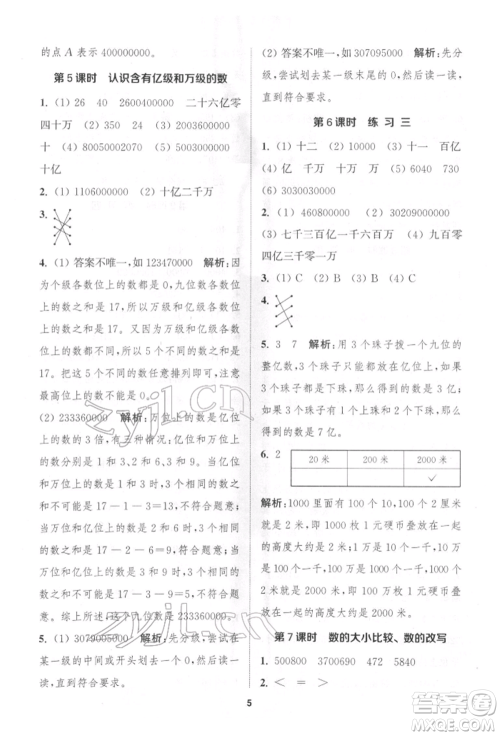 的点 A 表示 400000000。
第 5 课时　认识含有亿级和万级的数
1. (1) 26　40　2600400000　二十六亿零
四十万　(2) 350　(3) 2003600000
十　(4) 80050002070　(5) 5003000000
十亿
2. (1) 1106000000　(2) 十亿二千万
3.
4. (1) 答案不唯一,如 123470000　解析:因
为个级各数位上的数都是 0,九位数各数位
上的数之和是 17,所以万级和亿级各数位
上的数之和是 17,万级和亿级各数位上的
数都不同,所以 5 个不同的数之和是 17,
只要保证 5 个不同的数之和是 17,并注意
最高位上的数不是 0。
(2) 233360000　解析:万位上的数是亿位
上的数的 3 倍,有三种情况,亿位和万位上
的数分别是 1 和 3,2 和 6,3 和 9。当亿位
和万位上的数分别是 1 和 3 时,3 个相同的
数之和是 17-1-3=13,不符合题意;
当亿位和万位上的数是 2 和 6 时,3 个相同
的数之和是 17-2-6=9,符合题意;当
亿位和万位上的数是 3 和 9 时,3 个相同的
数之和是 17-3-9=5,不符合题意。
综上所述,这个九位数是 233360000。
5. (1) 3079005000　解析:先分级,尝试在
某一级的中间或开始画 0,然后读一读,
直到符合要求。
(2) 答案不唯一,如 307095000　解析:先分
级,尝试划去某一级末尾的 0,然后读一读,
直到符合要求。
第 6 课时　练 习 三
1. (1) 十二　(2) 10000　(3) 十一　百亿
(4) 亿　千万　千　十　(5) 6040　730
(6) 3030030000
2. (1) 460800000　(2) 30209000000
(3) 七千三百一十六万　(4) 二百九十
四亿三千零一万
3. (1) C　(2) B　(3) B
4.
5. 3　7　解析:用 3 个珠子拨一个九位的
整亿数,3 个珠子只能都拨在亿位上。如
果 3 个珠子都是上珠,那么得到的数是 3 亿;
如果 3 个珠子有 2 个上珠,1 个下珠,那么
得到的数是 7 亿。
6. 2
20 米　200 米　2000 米
✓
解析:1000 里面有 10 个 100,10 个 2 厘米
就是 20 厘米,所以 1000 枚 1 元硬币叠放
在一起的高度大约是 20 厘米,即 2 分米;10 万
里面有 100 个 1000,100 个 2 米就是 200 米,
所以 10 万枚 1 元硬币叠放在一起
的高度大约是 200 米;100 万里面有 10 个
10 万,10 个 200 米就是 2000 米,所以
100 万枚 1 元硬币叠放在一起的高度大约
是 2000 米。
第 7 课时　数的大小比较、数的改写
1. 500800　3700690　472　5840
2. <　=　>
5